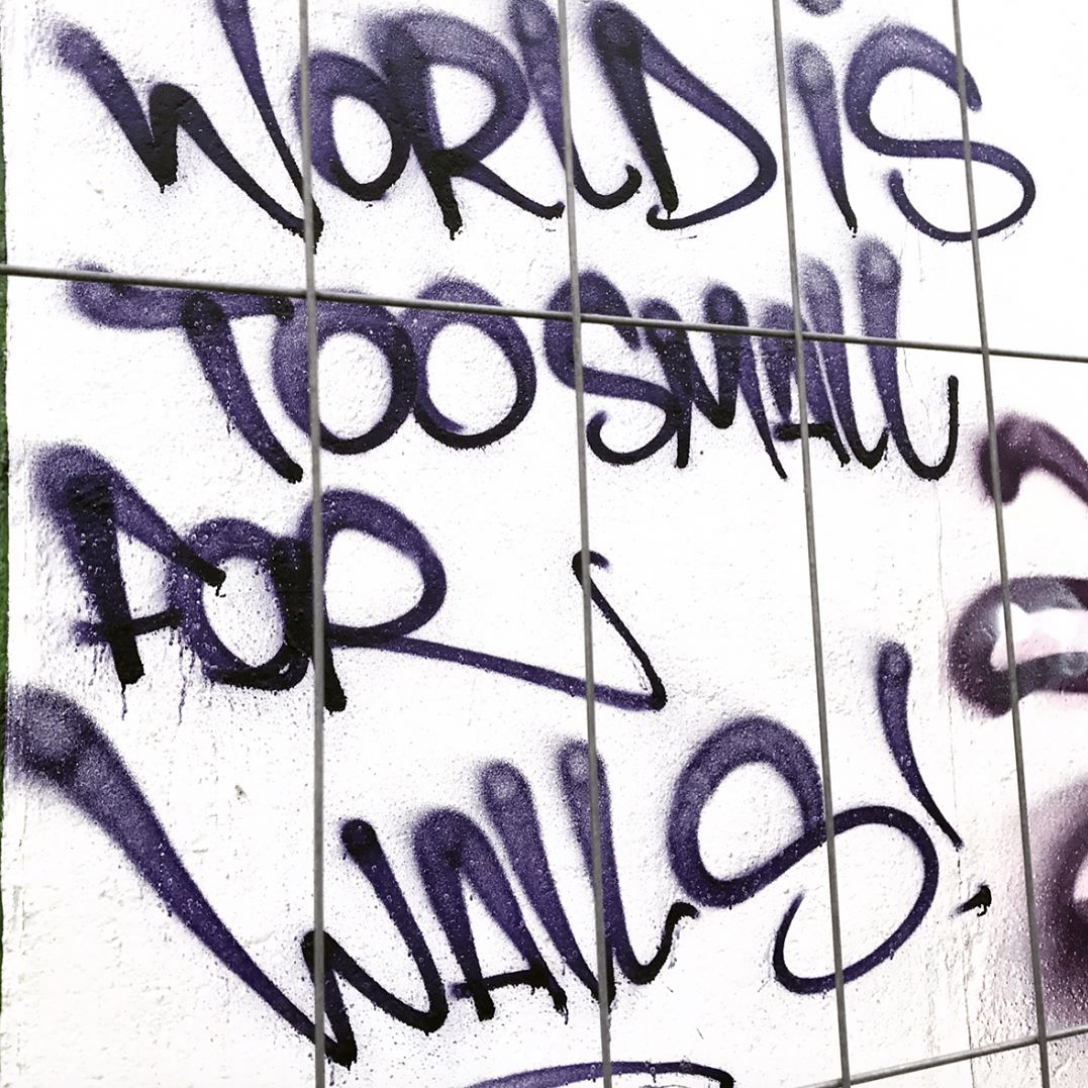 WORLD iS
TOO SMALL
FOR
WALLS!